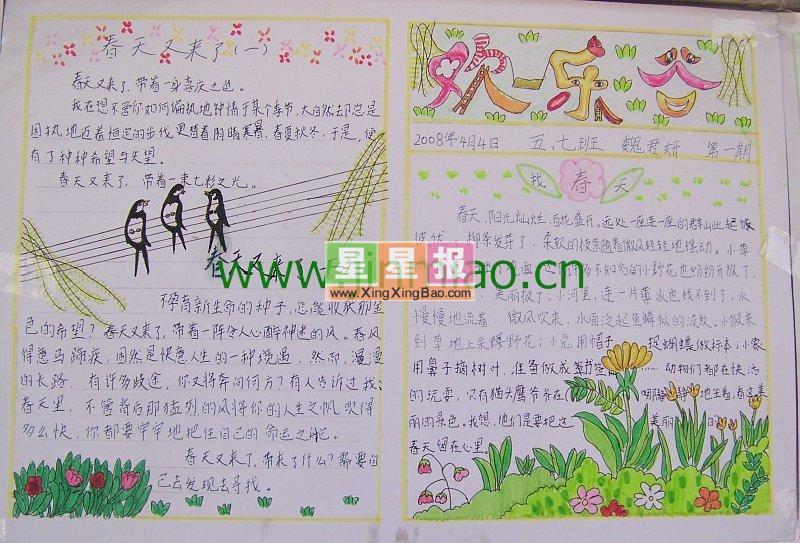 春天又来了(一)
春天又来了,带着一身喜庆之色。
我在想不管你如何偏执地钟情于某个季节,大自然却总是
固执地迈着恒定的步伐。更替着阴晴寒暑,春夏秋冬,于是,便
有了种种希望与失望。
春天又来了,带着一束七彩之光。
春天又来了
不孕育新生命的种子,怎能收获那金
色的希望?春天又来了,带着一阵令人心醉神迷的风。春风
得意马蹄疾,固然是快意人生的一种境遇,然而,漫漫
的长路,有许多歧途,你又将奔向何方?有人告诉过我:
春天里,不管背后那猛烈的风将你的人生之帆吹得
多么快,你都要牢牢地把住自己的命运之舵。
春天又来了,带来了什么?需要自
己去发现去寻找。
欢乐谷
2008年4月4日 五.七班 魏君妍 第一期
找春天
春天,阳光灿烂,百花盛开。远处一座连一座的群山此起彼
伏,柳条发芽了,柔软的枝条随着微风轻轻地摆动。小草
不知名的小野花也纷纷开放了,
美丽极了,小河里,连一片薄冰也找不到了,水
慢慢地流着,微风吹来,水面泛起鱼鳞似的波纹。小猴来
到草地上采蜂野花;小兔用帽子捉蝴蝶做标本;小象
用鼻子摘树叶,准备做成书签……动物们都在快活
的玩耍,只有猫头鹰爷爷在静静地坐着看这美
丽的景色。我想,他们是要把这美丽的
春天留在心里。
星星报
www.XingXingBao.com
www.jinmibao.cn